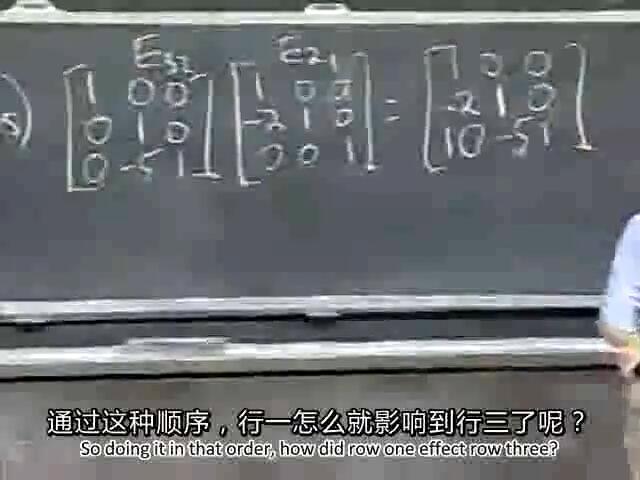 E32 E21
s) [1 0 0 [1 0 0 = [1 0 0
0 1 0 -2 1 0 -2 1 0
0 -5 1] 0 0 1] 10 -5 1]
通过这种顺序，行一怎么就影响到行三了呢？
So doing it in that order, how did row one effect row three?